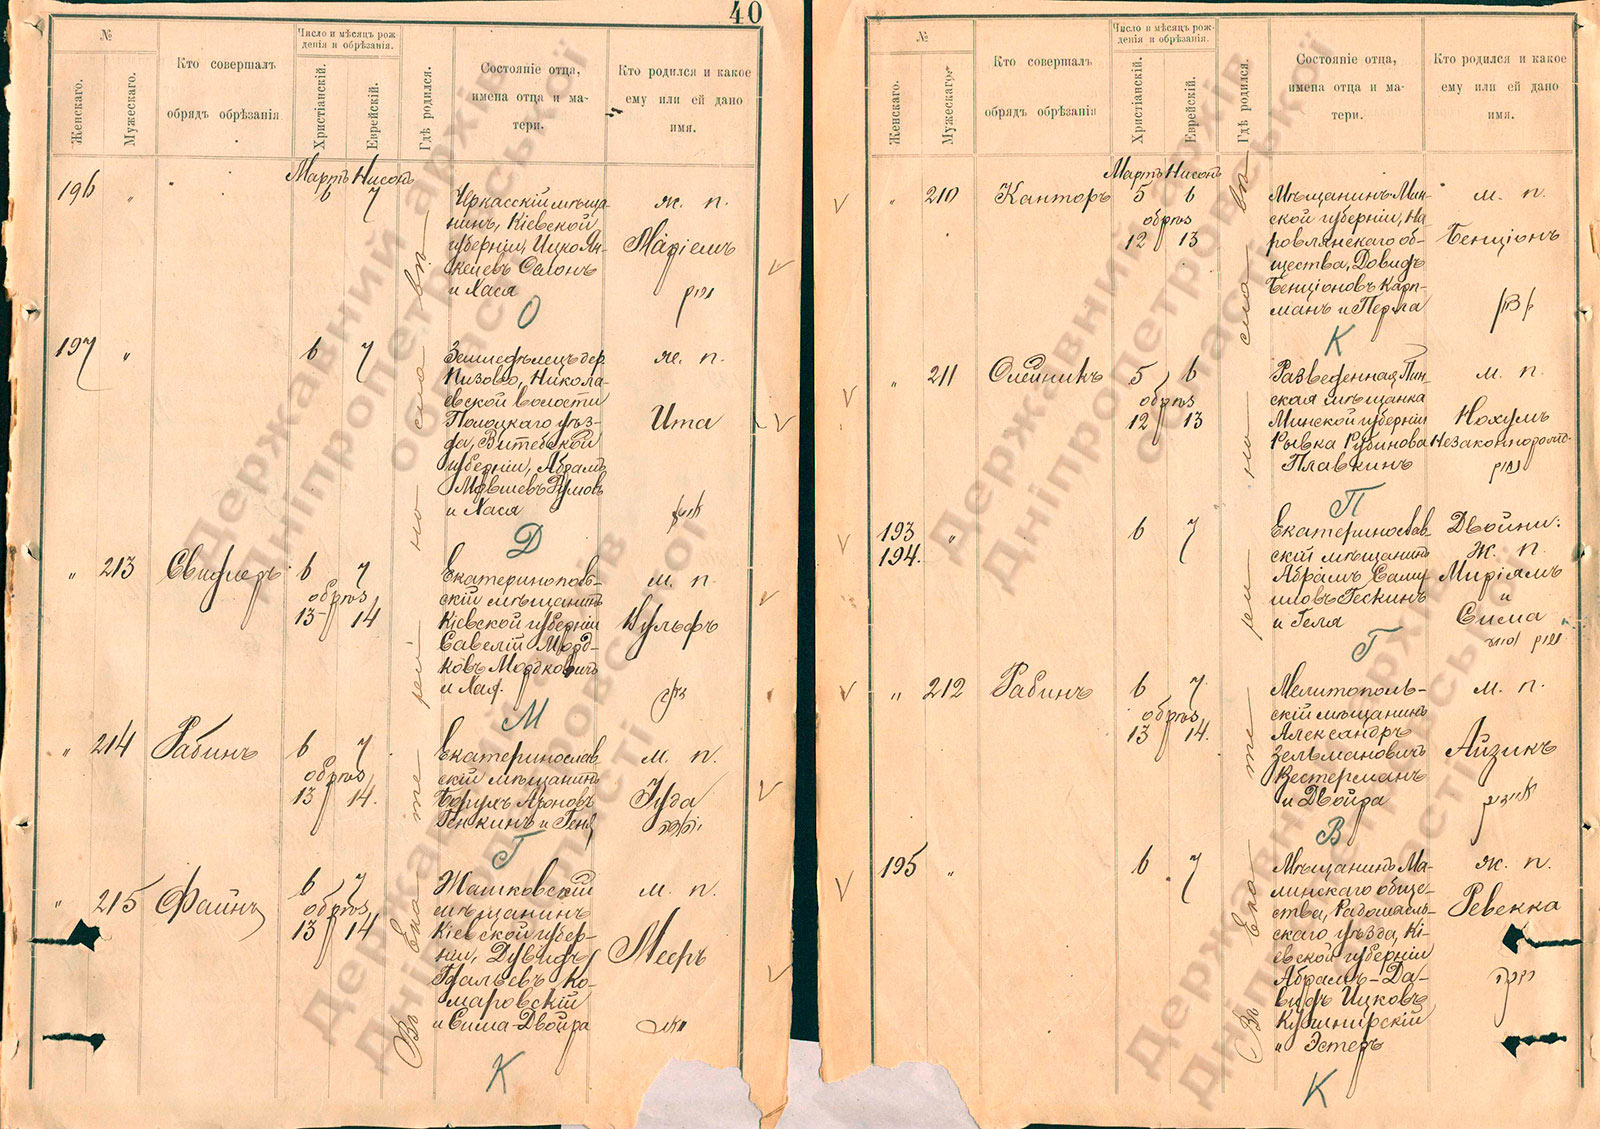 40
№
Женскаго.
Мужескаго.
Кто совершалъ
обрядъ обрѣзанія
Число и мѣсяцъ рож
денія и обрѣзанія.
Христіанскій.
Еврейскій.
Гдѣ родился.
Состояніе отца,
имена отца и ма-
тери.
Кто родился и какое
ему или ей дано
имя.
Мартъ Нисонъ
196 " 6 7
Черкасскій мѣща
нинъ, Кіевской
губерніи, Ицко Ян-
келевъ
и Хася
ж. п.
Маріемъ
מרים
О
197 " 6 7
Земледѣлецъ дер
Низово, Никола-
евской волости
Полоцкаго уѣз-
да, Витебской
губерніи, Абрамъ
Мовшевъ
и Хася
ж. п.
Ита
Д
" 213
6 7
обрѣз
13 14
Екатеринополь-
скій мѣщанинъ
Кіевской губерніи
Савелій Морд-
ковъ Мордковичъ
и Хая.
м. п.
Вульфъ
М
" 214 Рабинъ
6 7
обрѣз
13 14.
Екатеринослав
скій мѣщанинъ
Борухъ Ароновъ
Генкинъ и Геня
м. п.
Іуда
Г
" 215 Файнъ
6 7
обрѣз
13 14
Жашковскій
мѣщанинъ
Кіевской губер-
ніи, Дувидъ
Ко-
маровскій
и Сима-Двойра
м. п.
Мееръ
К
№
Женскаго.
Мужескаго.
Кто совершалъ
обрядъ обрѣзанія
Число и мѣсяцъ рож-
денія и обрѣзанія.
Христіанскій.
Еврейскій.
Гдѣ родился.
Состояніе отца,
имена отца и ма-
тери.
Кто родился и какое
ему или ей дано
имя.
Мартъ Нисонъ
" 210 Канторъ
5 6
обрѣз
12 13
Мѣщанинъ Мин-
ской губерніи, На
ровлянскаго об-
щества, Довидъ
Бенціоновъ Карп-
манъ и Перла
м. п.
Бенціонъ
К
" 211 Олейникъ
5 6
обрѣз
12 13
Разведенная Пин-
ская мѣщанка
Минской губерніи
Рывка Рубинова
Плавкинъ
м. п.
Нохумъ
נחום
П
193 "
194.
6 7
Екатеринослав
скій мѣщанинъ
Абрамъ Самуи
ловъ Гескинъ
и Геля
Двойни:
ж. п.
Миріамъ
и
Сима
Г
" 212 Рабинъ
6 7
обрѣз
13 14.
Мелитополь-
скій мѣщанинъ
Александръ
Зельмановичъ
Вестерманъ
и Двойра
м. п.
Айзикъ
В
195 "
6 7
Мѣщанинъ Ма-
линскаго обще-
ства, Радомысль-
скаго уѣзда, Кі-
евской губерніи
Абрамъ-Да-
видъ Ицковъ
Кушнирскій
и Эстеръ
ж. п.
Ревекка
К
Державний архів
Дніпропетровської
області